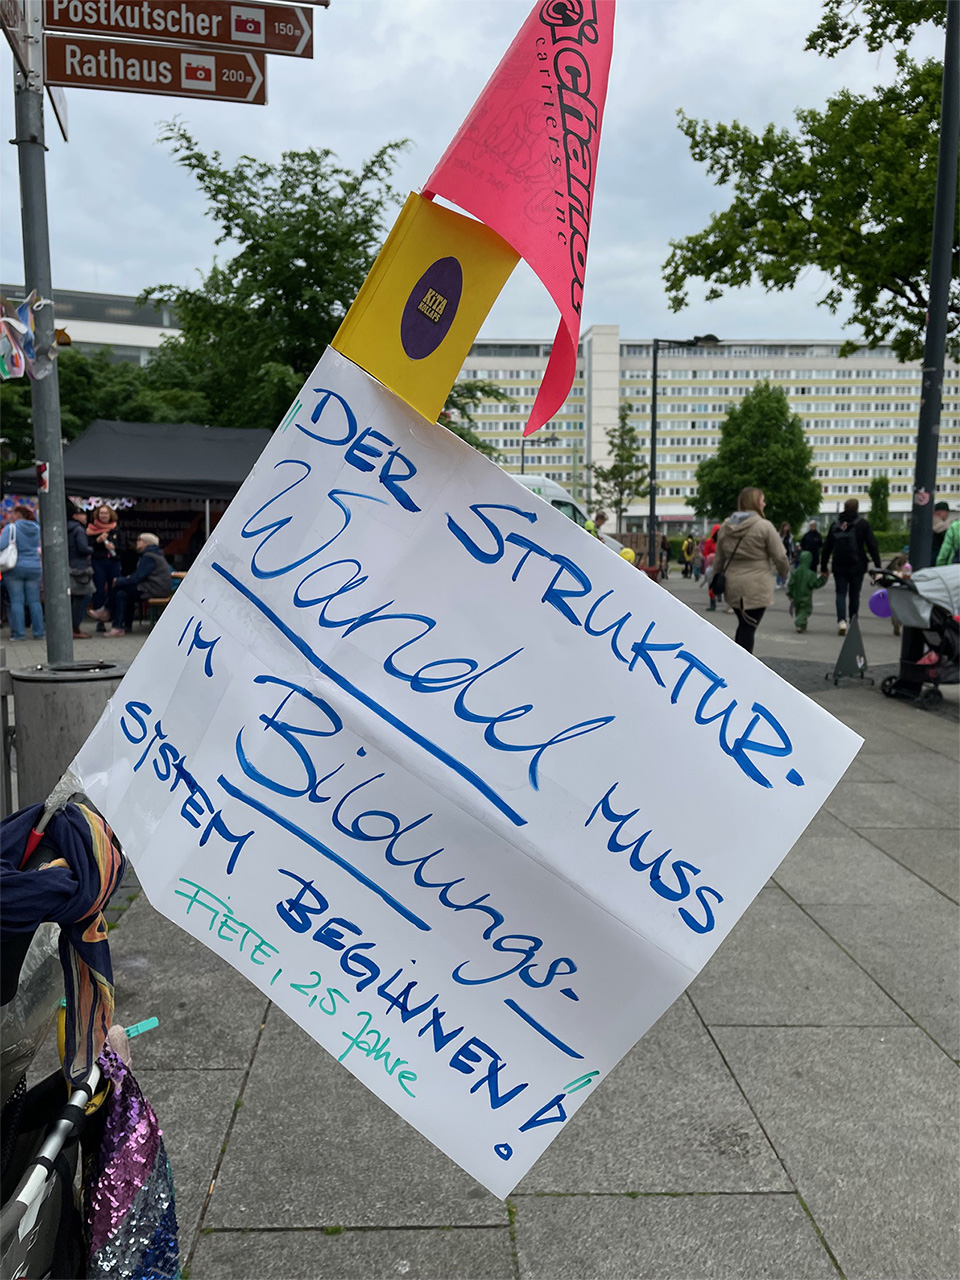 Postkutscher 150m
Rathaus 200m
Chariot
carriers inc
KiTA
KOLLAPS
"DER STRUKTUR-
Wandel MUSS
iM Bildungs-
SYSTEM BEGiNNEN!"
FiETE, 2,5 Jahre